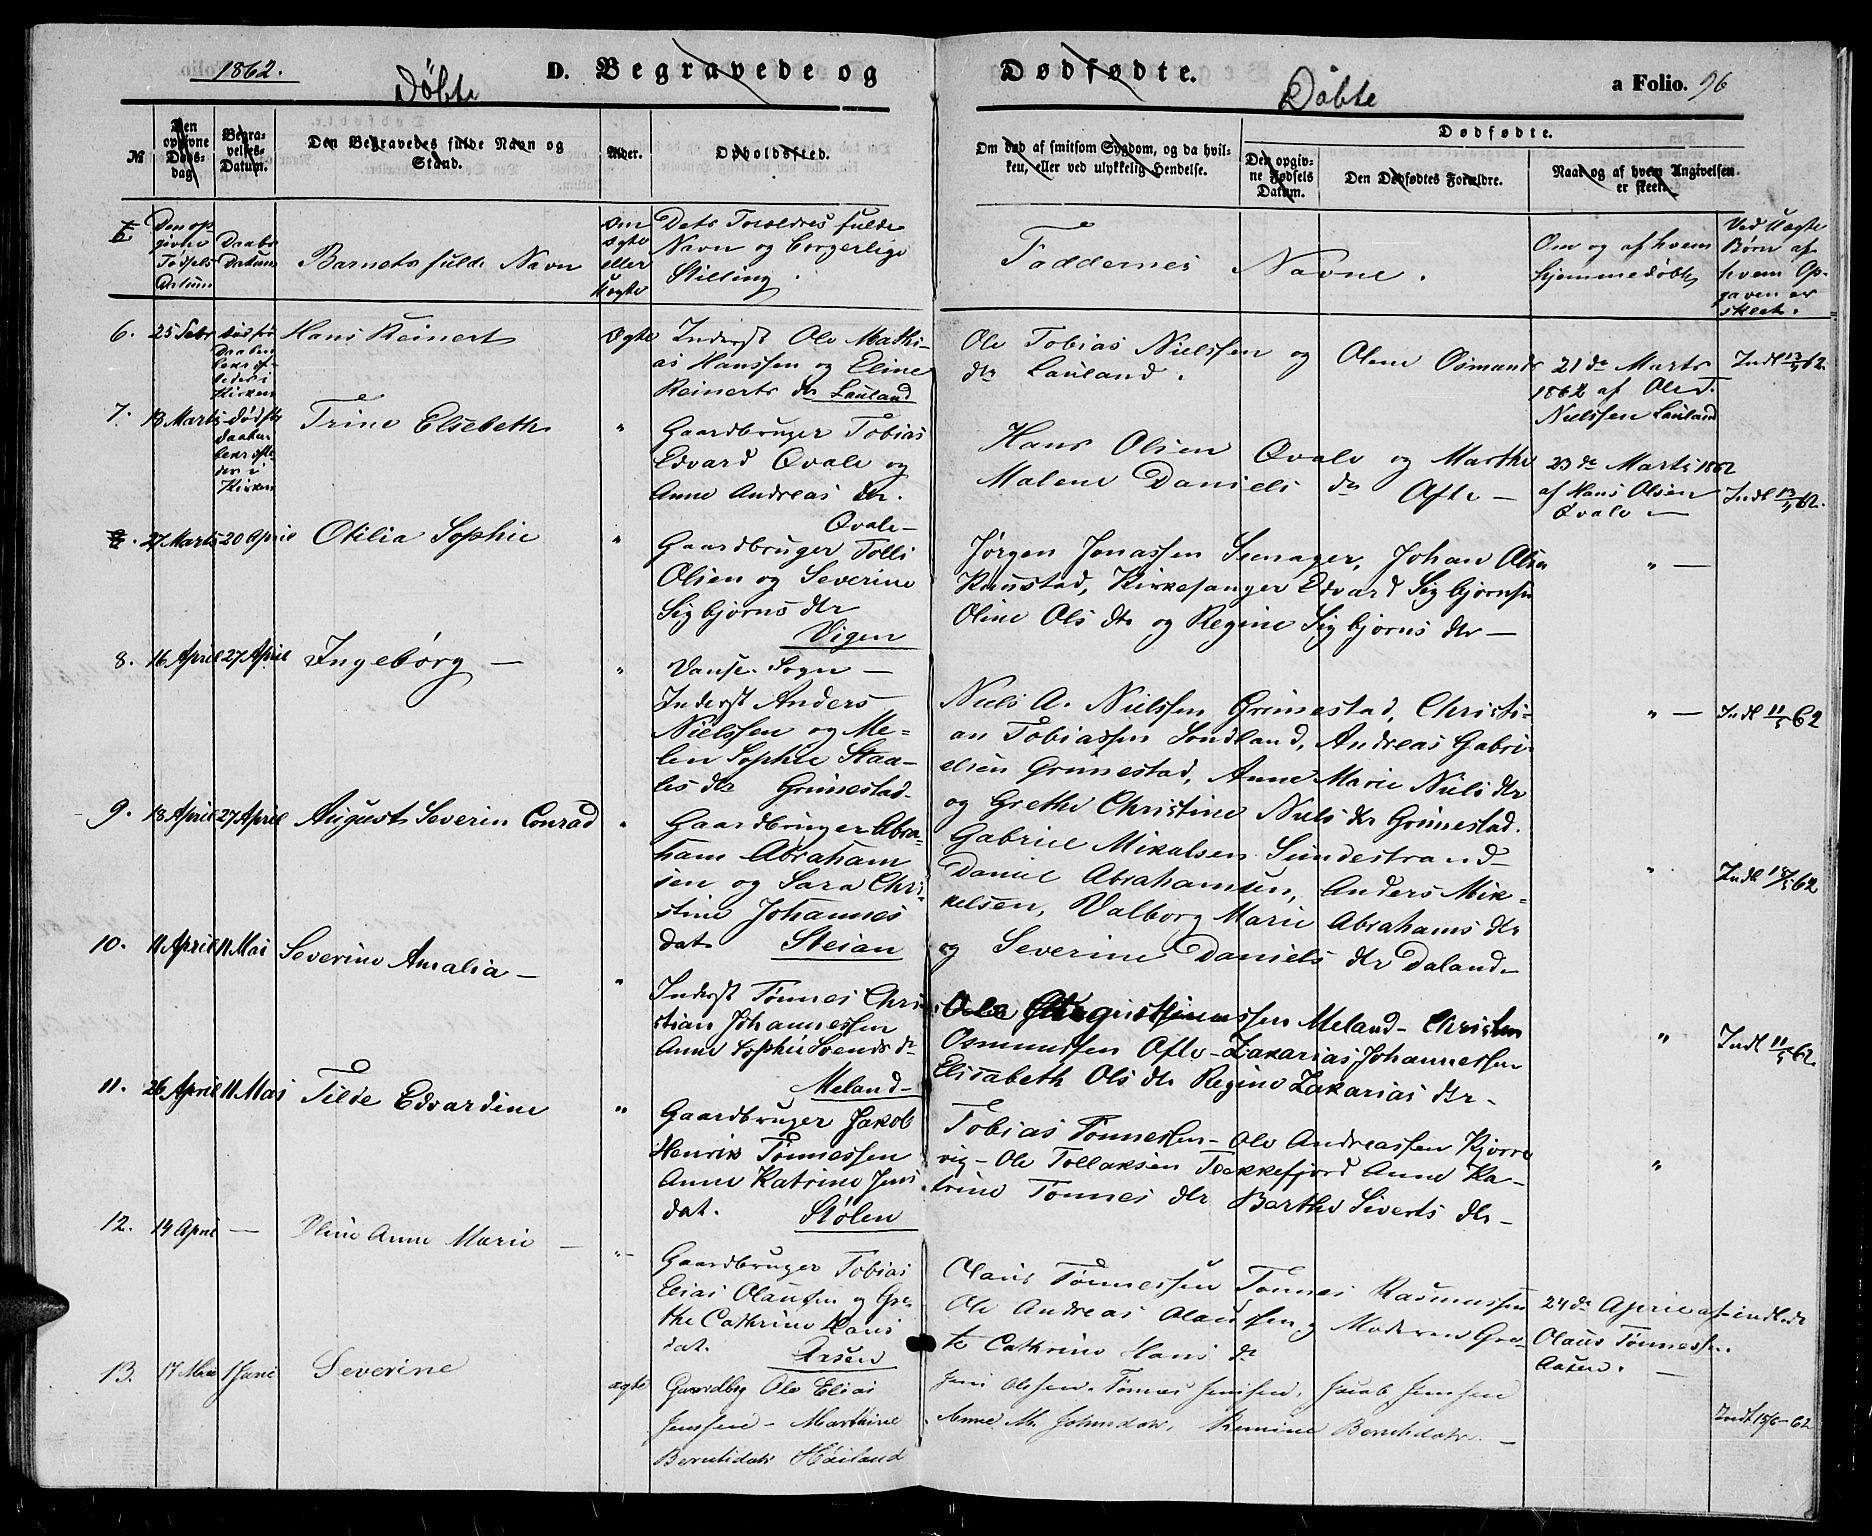 1862.
D. Begravede og Dødfødte.
Døbte
Døbte
a Folio. 96
№
Den opgivne Døds-dag
Begra-velses-Datum.
Den Begravedes fulde Navn og Stand.
Alder.
Opholdssted.
Om død af smitsom Sygdom, og da hvil-
ken, eller ved ulykkelig Hendelse.
Dødfødte.
Den opgiv-
ne Fødsels
Datum.
Den Dødfødtes Forældre.
Naar og af hvem Angivelsen
er skeet.
Den op
givne
Fødsels
Datum
Daabs
Datum
Barnets fulde Navn
Om
ægte
eller
uægte
Dets Forældres fulde
Navn og borgerlige
Stilling.
Faddernes Navne.
Om og af hvem
hjemmedøbt
Ved Uægte
Børn af
hvem Op-
gaven er
skeet.
6.
25 Febr
død før
Daaben
bekræf-
tedes i
Kirken
Hans Reinert
Ægte
Inderst Ole Mathi-
as Hanssen og Eline
Reinerts dr Lauland
Ole Tobias Nielssen og Olene Osmunds
dtr Lauland.
21de Marts
1862 af Ole T.
Nielssen Lauland
Indl 13/5 62.
7.
18 Marts
død før
daaben
bekræfte-
des i
Kirken
Trine Elsebeth
"
Gaardbruger Tobias
Edvard Qvale og
Anne Andreas dtr.
Qvale-
Hans Olsen Qvale og Marthe
Malene Daniels dtr Ofte -
23de Marts 1862
af Hans Olsen
Qvale -
Indl 13/5 62.
27 Marts
20 April
Otilia Sophie
"
Gaardbruger Tolli
Olsen og Severine
Sigbjørns dtr
Vigen
Jørgen Jonassen Log Johan Olsen
Knustad, Kirkesanger Edvard Sigbjørnsen
Oline Ols dtr og Regine Sigbjørns dtr -
" -
8.
16 April
27 April
Ingeborg -
"
Vanse Sogn -
Inderst Anders
Nielssen og Me-
len Sophie Staa-
les dtr Grimestad
Niels A. Nielssen Grimestad, Christi-
an Tobiassen Sondland, Andreas Gabri-
elsen Grimestad, Anne Marie Niels dtr
og Grethe Christine Niels dtr Grimestad.
" -
Indl 11/5 62
9.
18 April
27 April
August Severin Conrad
"
Gaardbruger Abra-
ham Abraham
sen og Sara Chri-
stine Johannes
dat. Steian
Gabriel Mikalsen Sundestrand
Daniel Abrahamsen, Anders Mik-
kelsen, Valborg Marie Abrahams dtr
og Severine Daniels dtr Daland.
"
Indl 18/5 62
10.
11 April
11 Mai
Severine Amalia -
"
Inderst Tønnes Chri
stian Johannessen
Anne Sophie Svends dr
Meland -
Ole Augustinussen Meland - Christen
Osmundsen Ofte - Zakarias Johannessen
Elisabeth Ols dtr Regine Zakarias dtr -
"
Indl 11/5 62
11.
26 April
11 Mai
Tilde Edvardine
"
Gaardbruger Jakob
Henrik Tønnessen
Anne Katrine Jens
dat. Stølen
Tobias Tønnessen - Ole Andreassen Kjørre
vig - Ole Tollaksen Trekkefjord Anne Ka-
trine Tønnes dtr Berthe Siverts dtr -
"
12.
14 April
-
Oline Anne Marie -
"
Gaardbruger Tobias
Elias Olaussen og Gre-
the Cathrine Hans
dat. Aasen
Olaus Tønnessen Tønnes Rasmussen
Ole Andreas Olaussen og Moderen Gre-
te Cathrine Hans dr
24de April af
Olaus Tønnessen.
Aasen. -
indledt
13.
17 Mai
1 Juni
Severine
ægte
Gaardbg Ole Elias
Jenssen - Marthine
Berntsdatr Høiland
Jens Olssen. Tønnes Jenssen, Jacob Jenssen
Anne M. Johnsdatr, Remine Berntsdatr. -
Indl 15/6 - 62